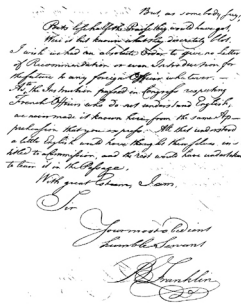 But, as somebody says,
Poets lose half the Praise they would have got
Were it but known what they discreetly blot.
I wish we had an absolute Order to give no letter
of Recommendation or even Introduction for
the future to any foreign Officer whatever.
As, the Instruction passed in Congress respecting
French Officers who do not understand English,
we never made it known here from the same Ap-
prehension that you express. All that understood
a little English would have thought themselves en-
titled to a Commission, and the rest would have undertaken
to learn it in the Passage
With great Esteem, I am,
Sir
Your most obedient
humble Servant
B Franklin